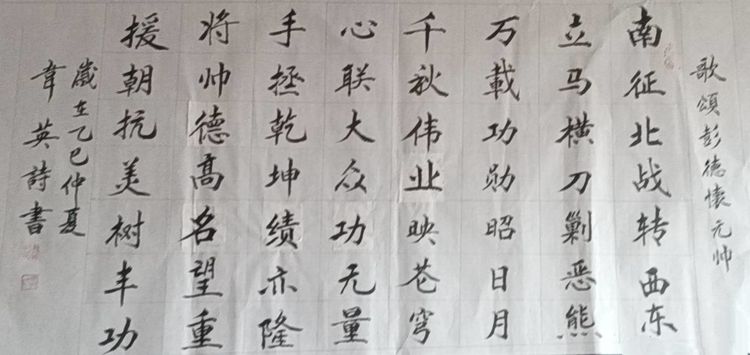 歌頌彭德懷元帅
南征北战转西东
立马横刀剿恶熊
万載功勋昭日月
千秋伟业映苍穹
心联大众功无量
手拯乾坤绩亦隆
将帅德高名望重
援朝抗美树丰功
歲在乙巳仲夏
韋英詩書